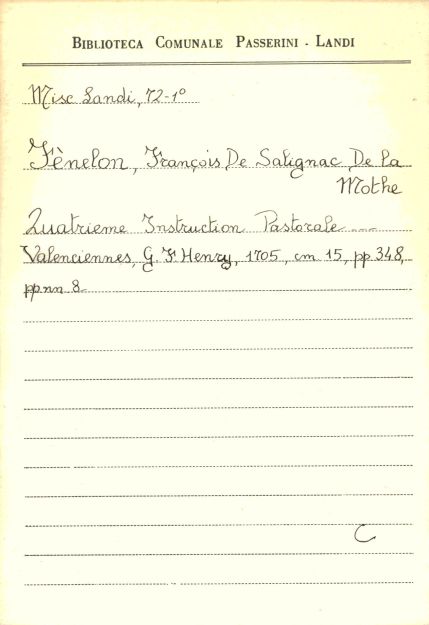 BIBLIOTECA COMUNALE PASSERINI - LANDI
Misc Landi, 72-1°
Fènelon, François De Salignac De La
Mothe
Quatrieme Instruction Pastorale ....
Valenciennes, G. F. Henry, 1705, cm 15, pp. 348,
pp.nn. 8.
C